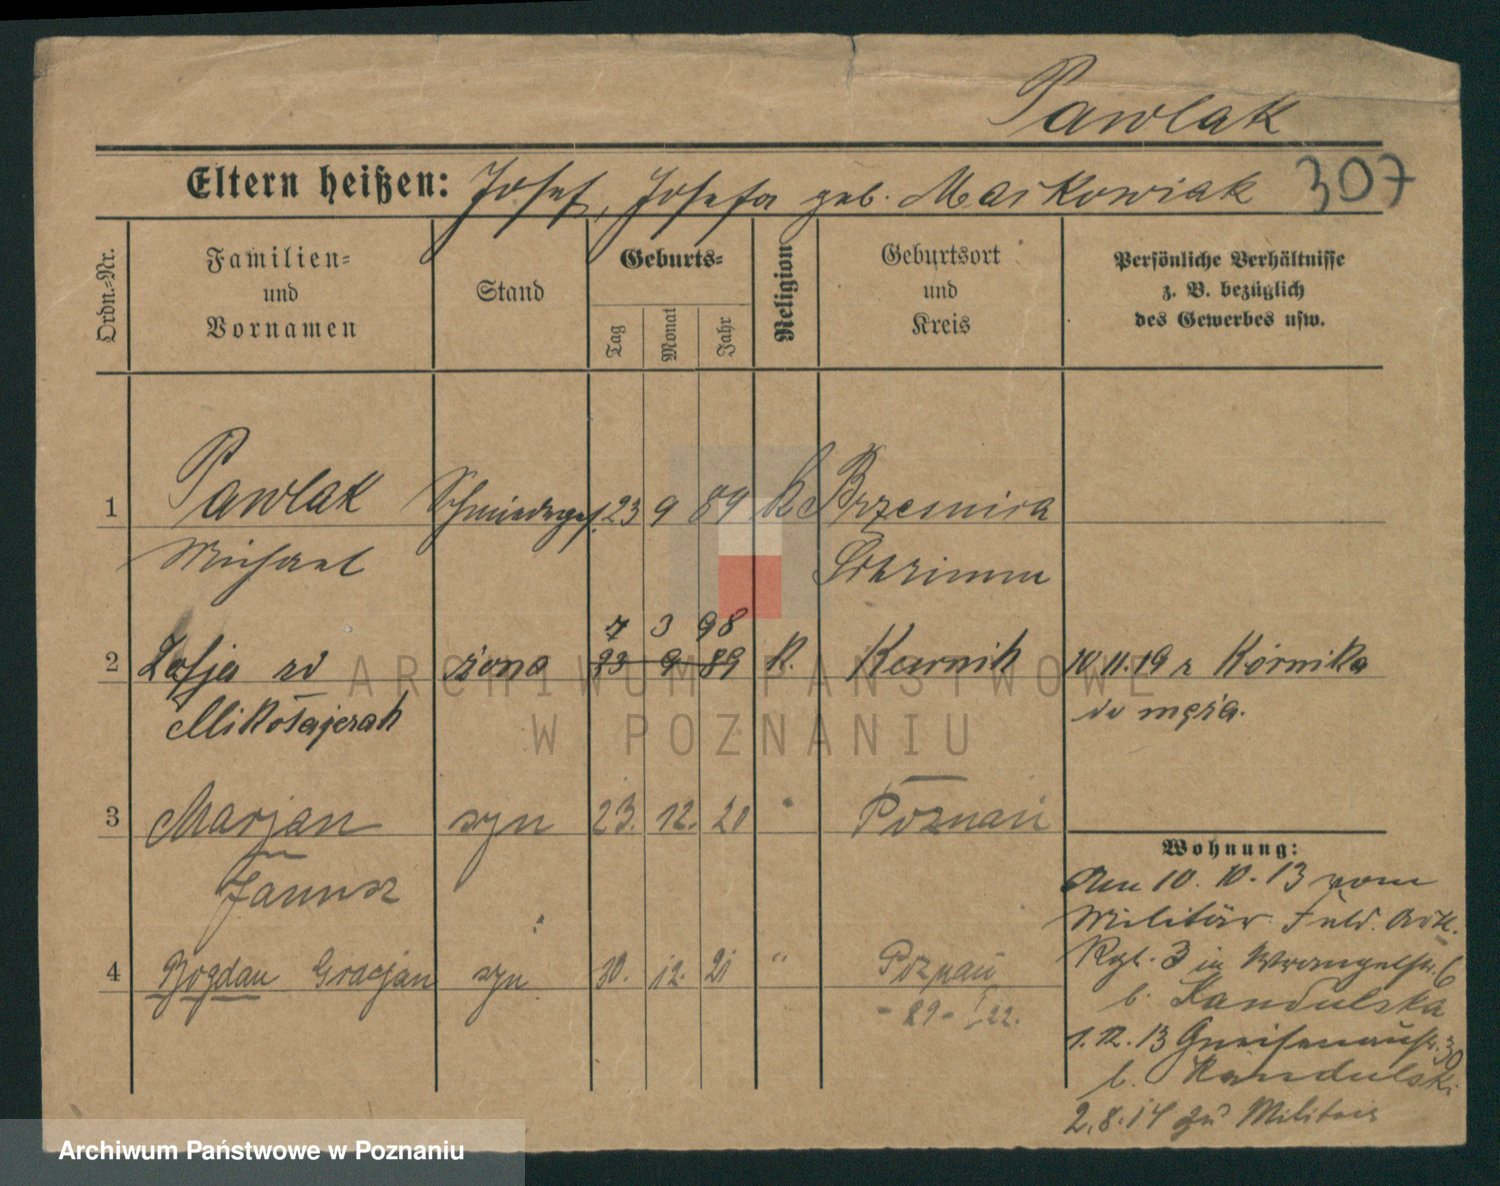 Pawlak
Eltern heißen: Josef, Josefa geb. Maćkowiak 307
Ordn.-Nr.
Familien- und Vornamen
Stand
Geburts-
Tag Monat Jahr
Religion
Geburtsort und Kreis
Persönliche Verhältnisse z. B. bezüglich des Gewerbes usw.
1 Pawlak Schmiedeges. 23 9 89 K
Michael Schrimm
7 3 98
2 Zofja żona 23 9 89 K. Kurnik 10.11.19 z Kórnika
Mikołajczak do męża.
3 Marjan syn 23. 12. 20 " Poznań
Janusz
4 Bogdan Gracjan syn 30. 12. 21 " Poznań
- 89 - I 22.
Wohnung:
Am 10.10.13 vom
Militär Feld. Art.
Rgt. 3 in Wrangelstr. 6
b. Kandulska
1.12.13 Gneisenaustr. 30
b. Kandulski
2.8.14 zu Militair
ARCHIWUM PAŃSTWOWE
W POZNANIU
Archiwum Państwowe w Poznaniu